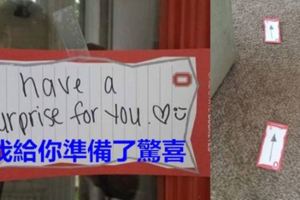 have a
surprise for you.
我給你準備了驚喜